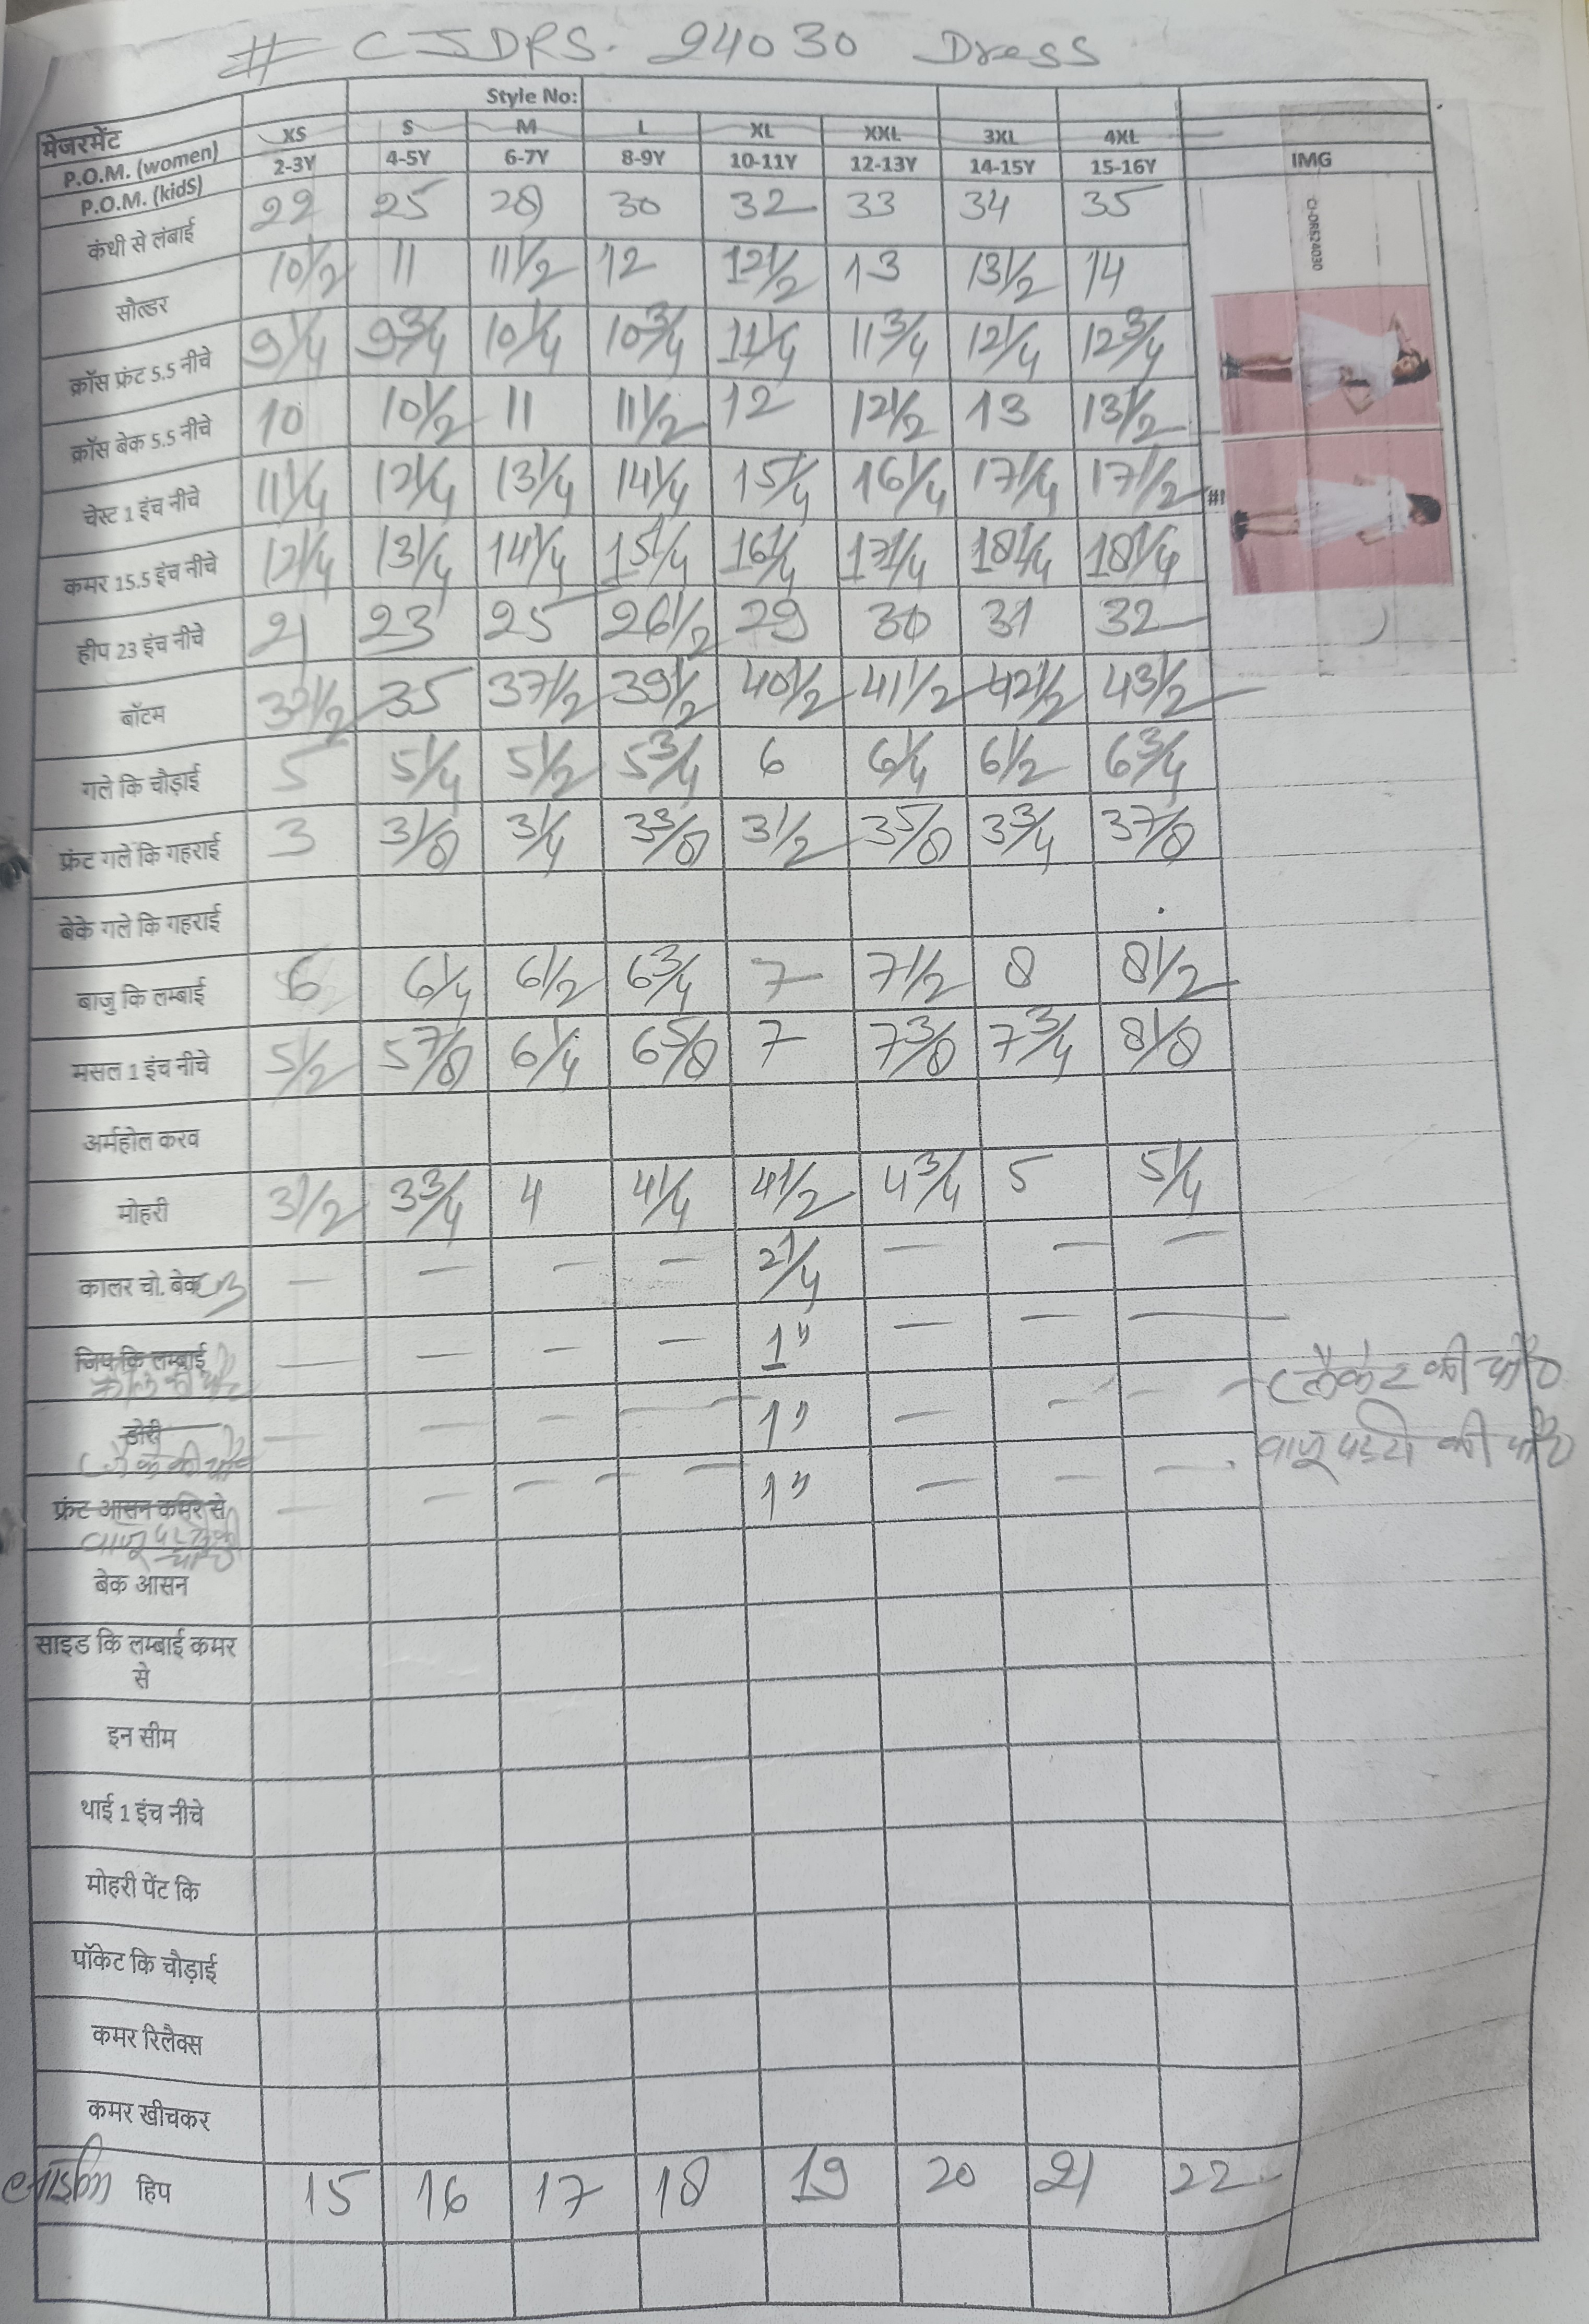 # CJDRS. 24030 Dress
Style No:
मेजरमेंट
P.O.M. (women) XS S M L XL XXL 3XL 4XL
P.O.M. (kidS) 2-3Y 4-5Y 6-7Y 8-9Y 10-11Y 12-13Y 14-15Y 15-16Y IMG
CI-DRS24030
कंधी से लंबाई 22 25 28 30 32 33 34 35
सौल्डर 10 1/2 11 11 1/2 12 12 1/2 13 13 1/2 14
क्रॉस फ्रंट 5.5 नीचे 9 1/4 9 3/4 10 1/4 10 3/4 11 1/4 11 3/4 12 1/4 12 3/4
क्रॉस बेक 5.5 नीचे 10 10 1/2 11 11 1/2 12 12 1/2 13 13 1/2
चेस्ट 1 इंच नीचे 11 1/4 12 1/4 13 1/4 14 1/4 15 1/4 16 1/4 17 1/4 17 1/2 #!
कमर 15.5 इंच नीचे 12 1/4 13 1/4 14 1/4 15 1/4 16 1/4 17 1/4 18 1/4 18 1/4
हीप 23 इंच नीचे 21 23 25 26 1/2 29 30 31 32
बॉटम 32 1/2 35 37 1/2 39 1/2 40 1/2 41 1/2 42 1/2 43 1/2
गले कि चौड़ाई 5 5 1/4 5 1/2 5 3/4 6 6 1/4 6 1/2 6 3/4
फ्रंट गले कि गहराई 3 3 1/8 3 1/4 3 3/8 3 1/2 3 5/8 3 3/4 3 7/8
बेके गले कि गहराई
बाजु कि लम्बाई 6 6 1/4 6 1/2 6 3/4 7 7 1/2 8 8 1/2
मसल 1 इंच नीचे 5 1/2 5 7/8 6 1/4 6 5/8 7 7 3/8 7 3/4 8 1/8
अर्महोल करव
मोहरी 3 1/2 3 3/4 4 4 1/4 4 1/2 4 3/4 5 5 1/4
कालर चो. बेक — — — — 2 1/4 — — —
जिप कि लम्बाई — — — — 1" — — —
डोरी — — — — 1" — — — की चौ०
फ्रंट आसन कमर से — — — — 1" — — — बाजू पट्टी की चौ०
बेक आसन
साइड कि लम्बाई कमर
से
इन सीम
थाई 1 इंच नीचे
मोहरी पेंट कि
पॉकेट कि चौड़ाई
कमर रिलैक्स
कमर खीचकर
हिप 15 16 17 18 19 20 21 22